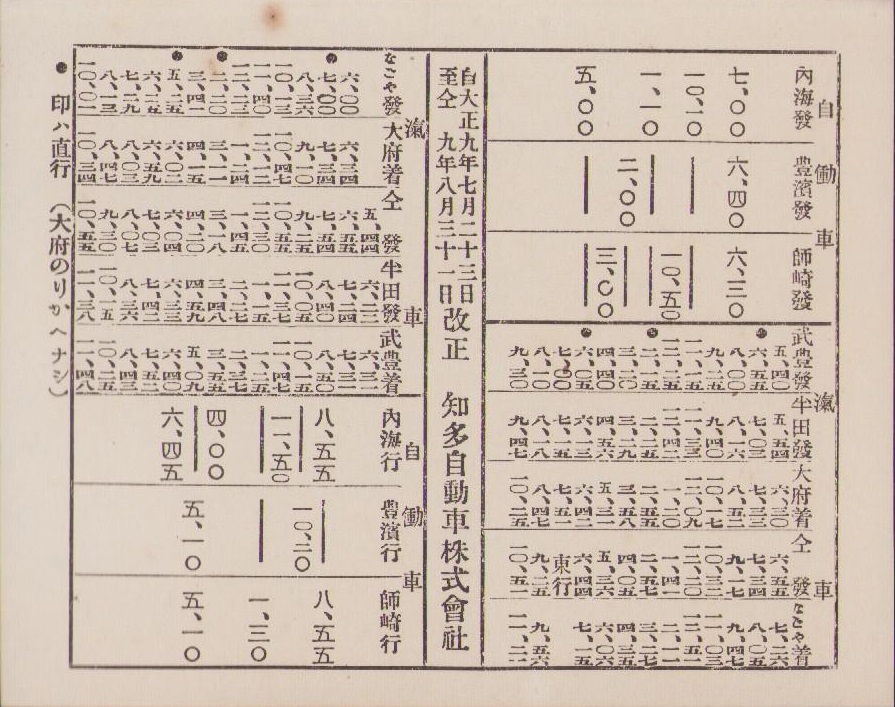 自働車
内海發 七、〇〇 一〇、一〇 一、一〇 五、〇〇
豊濱發 六、四〇 二、〇〇
師崎發 六、三〇 一〇、五〇 三、〇〇
滊車
武豊發 五、四〇 六、五五 八、〇〇 九、二五 四、四〇 六、〇五 八、一〇 九、三〇
半田發 五、五四 七、〇三 八、一六 九、四〇 一一、三三 一二、四三 二、二五 三、二九 四、五六 六、一三 七、一五 八、一八 九、四七
大府着 六、三〇 七、三三 八、五二 一〇、一七 一二、〇九 一、二〇 二、五五 三、五八 五、三一 六、四〇 七、五一 八、四七 一〇、二五
仝發 六、五五 七、三四 九、一七 一〇、三二 一二、二〇 一、四一 二、五七 四、〇五 五、三六 六、四四 東行 九、二五 一〇、五一
なごや着 七、二六 八、〇五 九、四七 一一、〇三 一二、五一 二、一一 三、二七 四、三五 六、〇六 七、一五 九、五六 一一、二一
自大正九年七月二十三日
至仝九年八月三十一日
改正 知多自動車株式會社
滊車
なごや發 六、〇〇 七、〇〇 八、三六 一〇、一三 一一、四〇 一二、二三 二、一〇 三、四一 五、二五 六、二五 七、二九 八、一三 一〇、〇一
大府着 六、三四 七、三四 九、一〇 一〇、四七 一二、一二 一、二四 三、一一 四、一五 六、〇二 六、五九 八、〇三 八、四七 一〇、三四
仝發 五、四四 六、五五 九、二五 一〇、五五 一二、三〇 一、四五 三、一八 四、二〇 六、〇四 七、〇三 八、〇七 九、三〇 一〇、五五
半田發 六、二二 七、二四 八、四〇 一〇、〇五 一一、三七 一、一五 二、二七 三、四八 四、五九 六、三三 七、四二 八、三六 一〇、一五 一一、三八
武豊着 六、三二 八、五〇 一〇、一五 一一、四七 一、二五 二、三七 三、五五 五、〇九 六、四〇 七、五二 八、四三 一〇、二五 一一、四八
自働車
内海行 八、五五 一一、五〇 四、〇〇 六、四五
豊濱行 一〇、二〇 五、一〇
師崎行 八、五五 一、三〇 五、一〇
● 印ハ直行 (大府のりかへナシ)